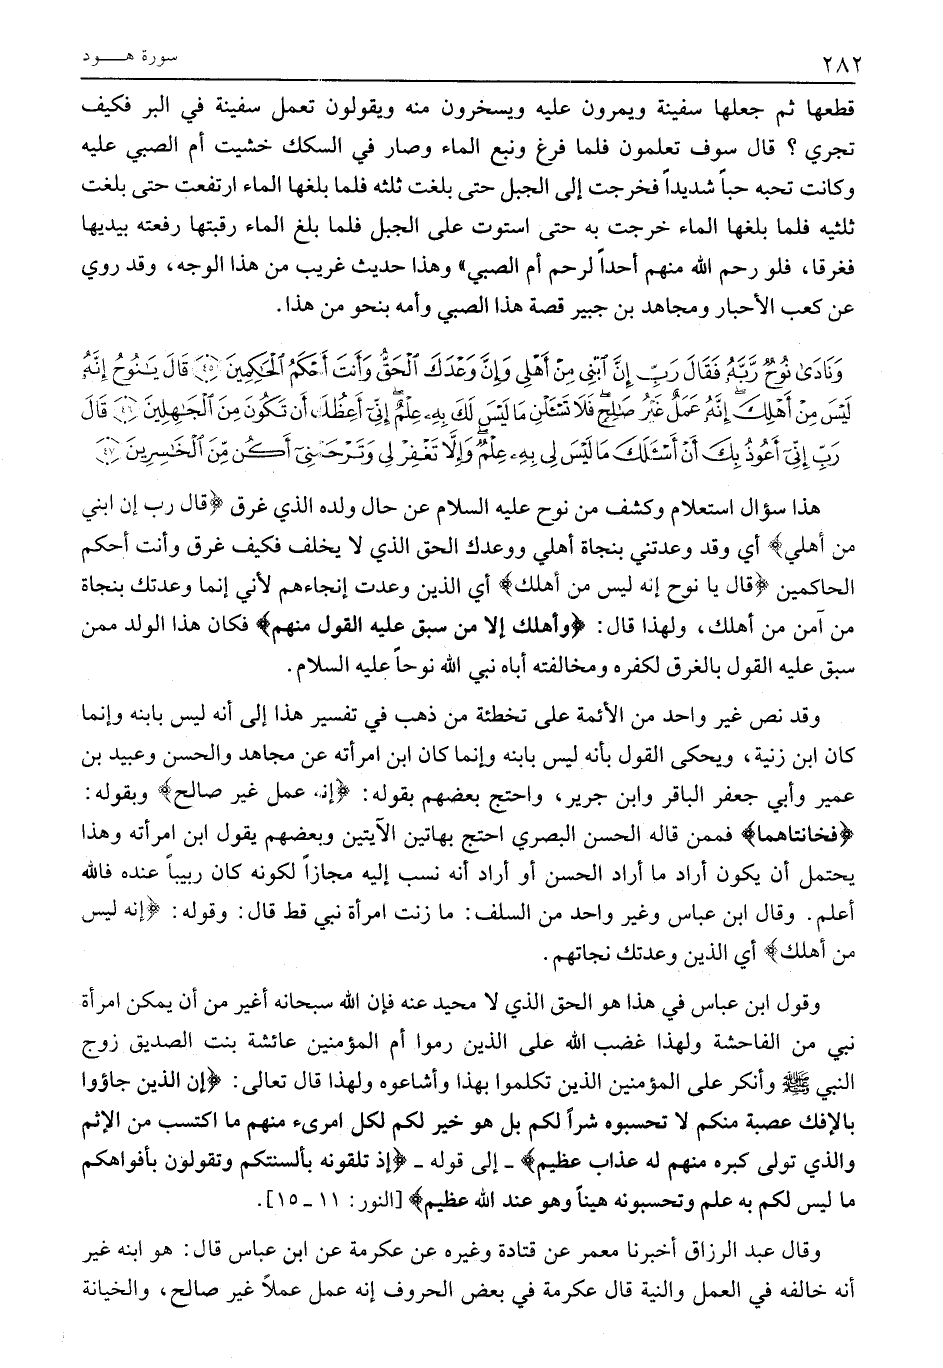 ٢٨٢ سورة هـــود
قطعها ثم جعلها سفينة ويمرون عليه ويسخرون منه ويقولون تعمل سفينة في البر فكيف
تجري ؟ قال سوف تعلمون فلما فرغ ونبع الماء وصار في السكك خشيت أم الصبي عليه
وكانت تحبه حباً شديداً فخرجت إلى الجبل حتى بلغت ثلثه فلما بلغها الماء ارتفعت حتى بلغت
ثلثيه فلما بلغها الماء خرجت به حتى استوت على الجبل فلما بلغ الماء رقبتها رفعته بيديها
فغرقا، فلو رحم الله منهم أحداً لرحم أم الصبي» وهذا حديث غريب من هذا الوجه، وقد روي
عن كعب الأحبار ومجاهد بن جبير قصة هذا الصبي وأمه بنحو من هذا.
وَنَادَىٰ نُوحٌ رَّبَّهُۥ فَقَالَ رَبِّ إِنَّ ٱبْنِى مِنْ أَهْلِى وَإِنَّ وَعْدَكَ ٱلْحَقُّ وَأَنتَ أَحْكَمُ ٱلْحَٰكِمِينَ ﴿٤٥﴾ قَالَ يَٰنُوحُ إِنَّهُۥ
لَيْسَ مِنْ أَهْلِكَ ۖ إِنَّهُۥ عَمَلٌ غَيْرُ صَٰلِحٍ ۖ فَلَا تَسْـَٔلْنِ مَا لَيْسَ لَكَ بِهِۦ عِلْمٌ ۖ إِنِّىٓ أَعِظُكَ أَن تَكُونَ مِنَ ٱلْجَٰهِلِينَ ﴿٤٦﴾ قَالَ
رَبِّ إِنِّىٓ أَعُوذُ بِكَ أَنْ أَسْـَٔلَكَ مَا لَيْسَ لِى بِهِۦ عِلْمٌ ۖ وَإِلَّا تَغْفِرْ لِى وَتَرْحَمْنِىٓ أَكُن مِّنَ ٱلْخَٰسِرِينَ ﴿٤٧﴾
هذا سؤال استعلام وكشف من نوح عليه السلام عن حال ولده الذي غرق ﴿قال رب إن ابني
من أهلي﴾ أي وقد وعدتني بنجاة أهلي ووعدك الحق الذي لا يخلف فكيف غرق وأنت أحكم
الحاكمين ﴿قال يا نوح إنه ليس من أهلك﴾ أي الذين وعدت إنجاءهم لأني إنما وعدتك بنجاة
من آمن من أهلك، ولهذا قال: ﴿وأهلك إلا من سبق عليه القول منهم﴾ فكان هذا الولد ممن
سبق عليه القول بالغرق لكفره ومخالفته أباه نبي الله نوحاً عليه السلام.
وقد نص غير واحد من الأئمة على تخطئة من ذهب في تفسير هذا إلى أنه ليس بابنه وإنما
كان ابن زنية، ويحكى القول بأنه ليس بابنه وإنما كان ابن امرأته عن مجاهد والحسن وعبيد بن
عمير وأبي جعفر الباقر وابن جرير، واحتج بعضهم بقوله: ﴿إنه عمل غير صالح﴾ وبقوله:
﴿فخانتاهما﴾ فممن قاله الحسن البصري احتج بهاتين الآيتين وبعضهم يقول ابن امرأته وهذا
يحتمل أن يكون أراد ما أراد الحسن أو أراد أنه نسب إليه مجازاً لكونه كان ربيباً عنده فالله
أعلم. وقال ابن عباس وغير واحد من السلف: ما زنت امرأة نبي قط قال: وقوله: ﴿إنه ليس
من أهلك﴾ أي الذين وعدتك نجاتهم.
وقول ابن عباس في هذا هو الحق الذي لا محيد عنه فإن الله سبحانه أغير من أن يمكن امرأة
نبي من الفاحشة ولهذا غضب الله على الذين رموا أم المؤمنين عائشة بنت الصديق زوج
النبي ﷺ وأنكر على المؤمنين الذين تكلموا بهذا وأشاعوه ولهذا قال تعالى: ﴿إن الذين جاؤوا
بالإفك عصبة منكم لا تحسبوه شراً لكم بل هو خير لكم لكل امرىء منهم ما اكتسب من الإثم
والذي تولى كبره منهم له عذاب عظيم﴾ ـ إلى قوله ـ ﴿إذ تلقونه بألسنتكم وتقولون بأفواهكم
ما ليس لكم به علم وتحسبونه هيناً وهو عند الله عظيم﴾ [النور: ١١ ـ ١٥].
وقال عبد الرزاق أخبرنا معمر عن قتادة وغيره عن عكرمة عن ابن عباس قال: هو ابنه غير
أنه خالفه في العمل والنية قال عكرمة في بعض الحروف إنه عمل عملاً غير صالح، والخيانة